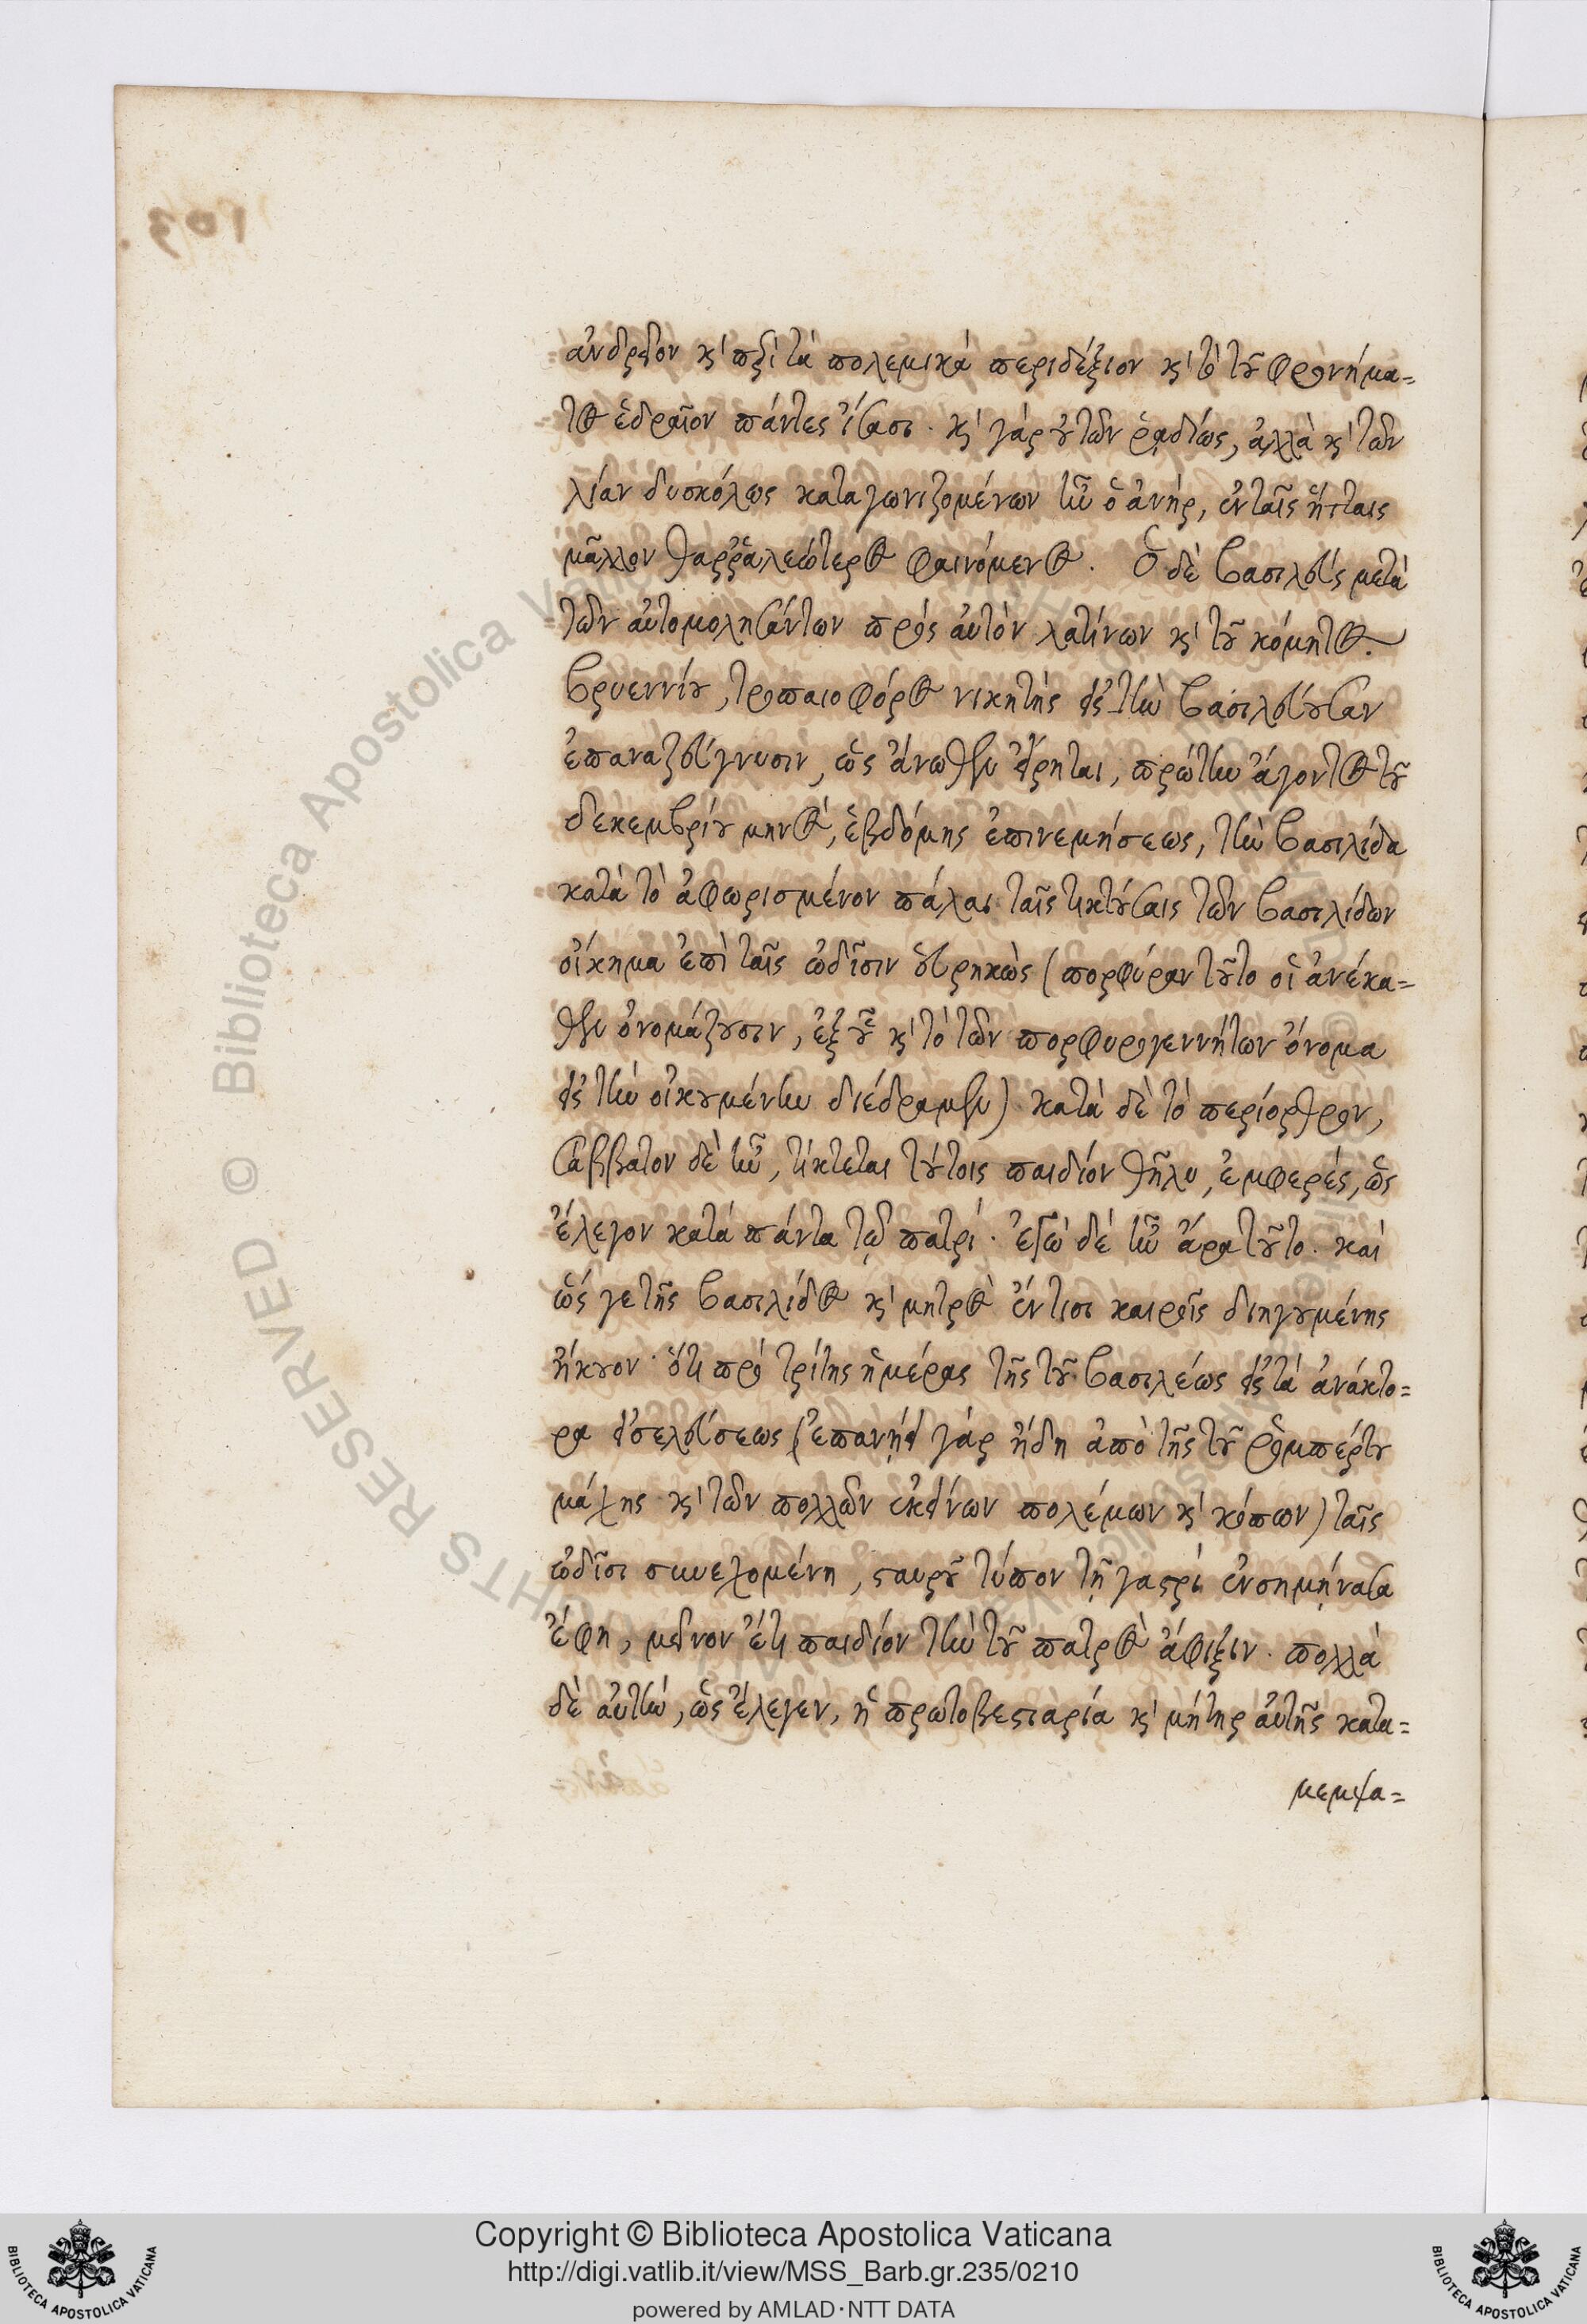 103
ἀνδρεῖον καὶ περὶ τὰ πολεμικὰ περιδέξιον καὶ τὸ τοῦ φρονήμα=
τος ἑδραῖον πάντες ἴσασι. καὶ γὰρ οὐ τῶν ῥᾳδίως, ἀλλὰ καὶ τῶν
λίαν δυσκόλως καταγωνιζομένων ἦν ὁ ἀνήρ, ἐν ταῖς ἥτταις
μᾶλλον θαρραλεώτερος φαινόμενος. Ὁ δὲ βασιλεὺς μετὰ
τῶν αὐτομολησάντων πρὸς αὐτὸν λατίνων καὶ τοῦ κόμητος
βρυεννίου, τροπαιοφόρος νικητὴς εἰς τὴν βασιλεύουσαν
ἐπαναζεύγνυσιν, ὡς ἄνωθεν εἴρηται, πρώτην ἄγοντος τοῦ
δεκεμβρίου μηνὸς, ἑβδόμης ἐπινεμήσεως, τὴν βασιλίδα
κατὰ τὸ ἀφωρισμένον πάλαι ταῖς τικτούσαις τῶν βασιλίδων
οἴκημα ἐπὶ ταῖς ὠδῖσιν εὑρηκὼς (πορφύραν τοῦτο οἱ ἀνέκα=
θεν ὀνομάζουσιν, ἐξ οὗ καὶ τὸ τῶν πορφυρογεννήτων ὄνομα
εἰς τὴν οἰκουμένην διέδραμεν) κατὰ δὲ τὸ περίορθρον,
Σάββατον δὲ ἦν, τίκτεται τούτοις παιδίον θῆλυ, ἐμφερές, ὡς
ἔλεγον κατὰ πάντα τῷ πατρί. ἐγὼ δὲ ἦν ἄρα τοῦτο. καὶ
ὥς γε τῆς βασιλίδος καὶ μητρὸς ἔν τισι καιροῖς διηγουμένης
ἤκουον· ὅτι πρὸ τρίτης ἡμέρας τῆς τοῦ βασιλέως εἰς τὰ ἀνάκτο=
ρα εἰσελεύσεως (ἐπανῄει γὰρ ἤδη ἀπὸ τῆς τοῦ ῥομπέρτου
μάχης καὶ τῶν πολλῶν ἐκείνων πολέμων καὶ κόπων) ταῖς
ὠδῖσι συνεχομένη, σταυροῦ τύπον τῇ γαστρὶ ἐνσημῄνασα
ἔφη, μεῖνον ἔτι παιδίον τὴν τοῦ πατρὸς ἄφιξιν. πολλὰ
δὲ αὐτὴν, ὡς ἔλεγεν, ἡ πρωτοβεστιαρία καὶ μήτηρ αὐτῆς κατα=
μεμψα=
© Biblioteca Apostolica Vaticana
Copyright © Biblioteca Apostolica Vaticana
http://digi.vatlib.it/view/MSS_Barb.gr.235/0210
powered by AMLAD·NTT DATA
BIBLIOTECA APOSTOLICA VATICANA
BIBLIOTECA APOSTOLICA VATICANA